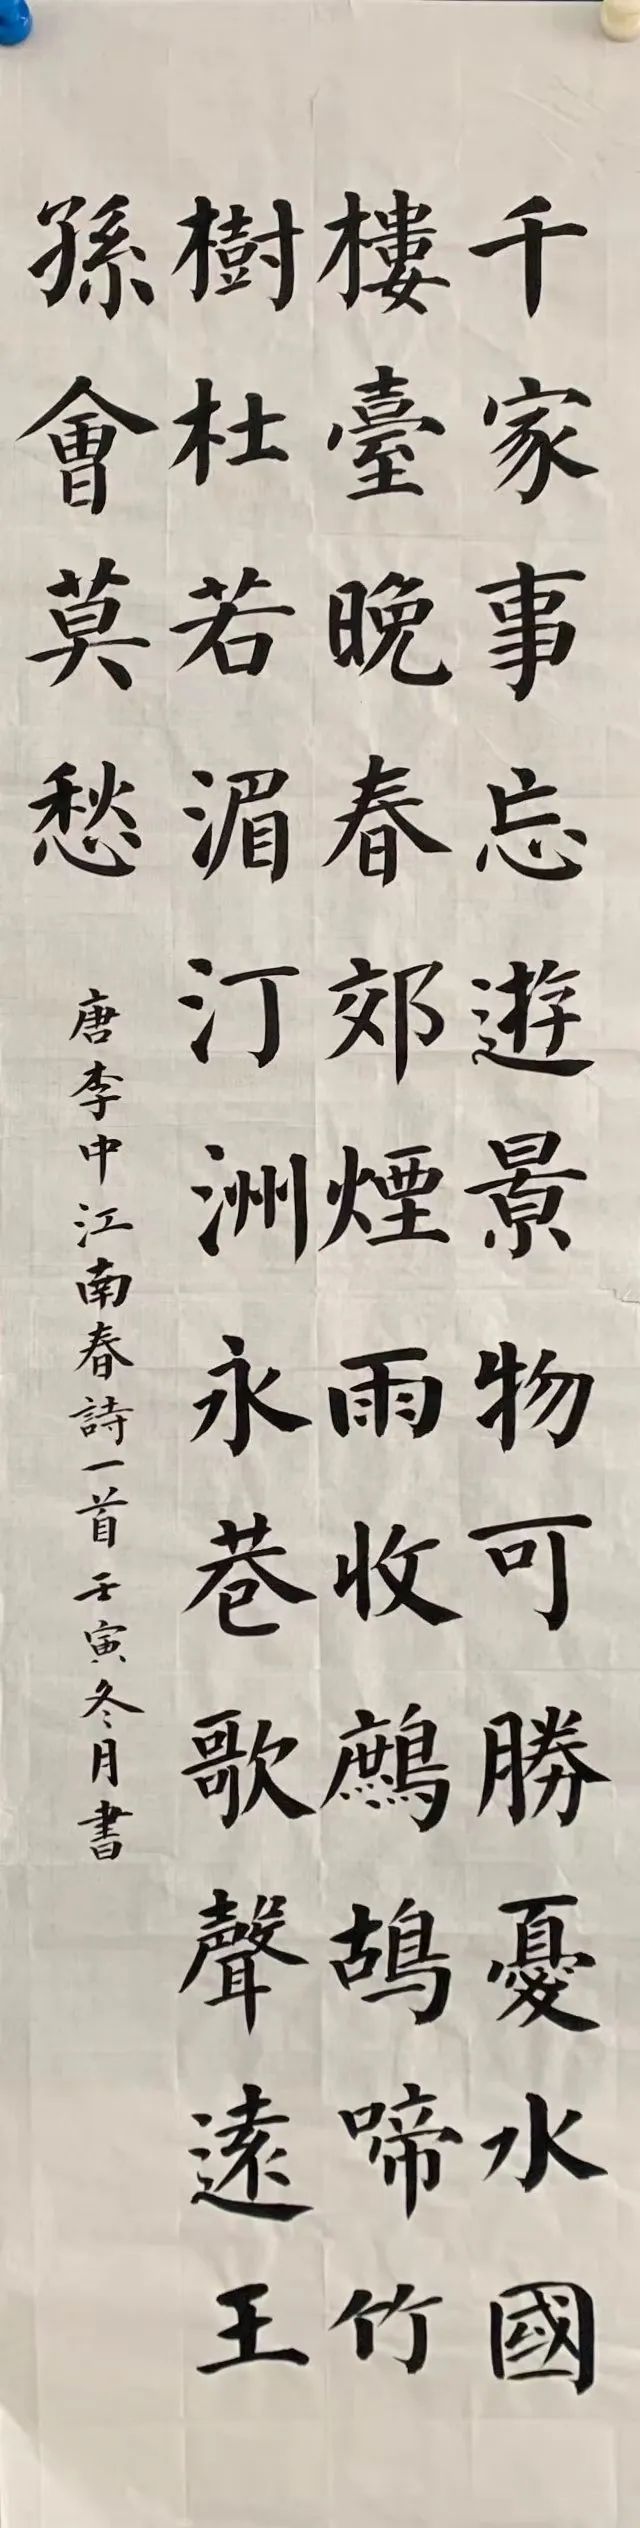 千家事忘遊景物可勝憂水國
樓臺晚春郊煙雨收鷓鴣啼竹
樹杜若湄汀洲永巷歌聲遠王
孫會莫愁
唐李中江南春詩一首壬寅冬月書